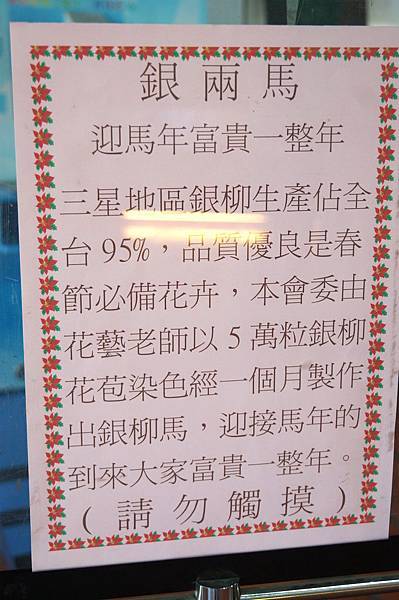 銀兩馬
迎馬年富貴一整年
三星地區銀柳生產佔全
台95%，品質優良是春
節必備花卉，本會委由
花藝老師以5萬粒銀柳
花苞染色經一個月製作
出銀柳馬，迎接馬年的
到來大家富貴一整年。
(請勿觸摸)